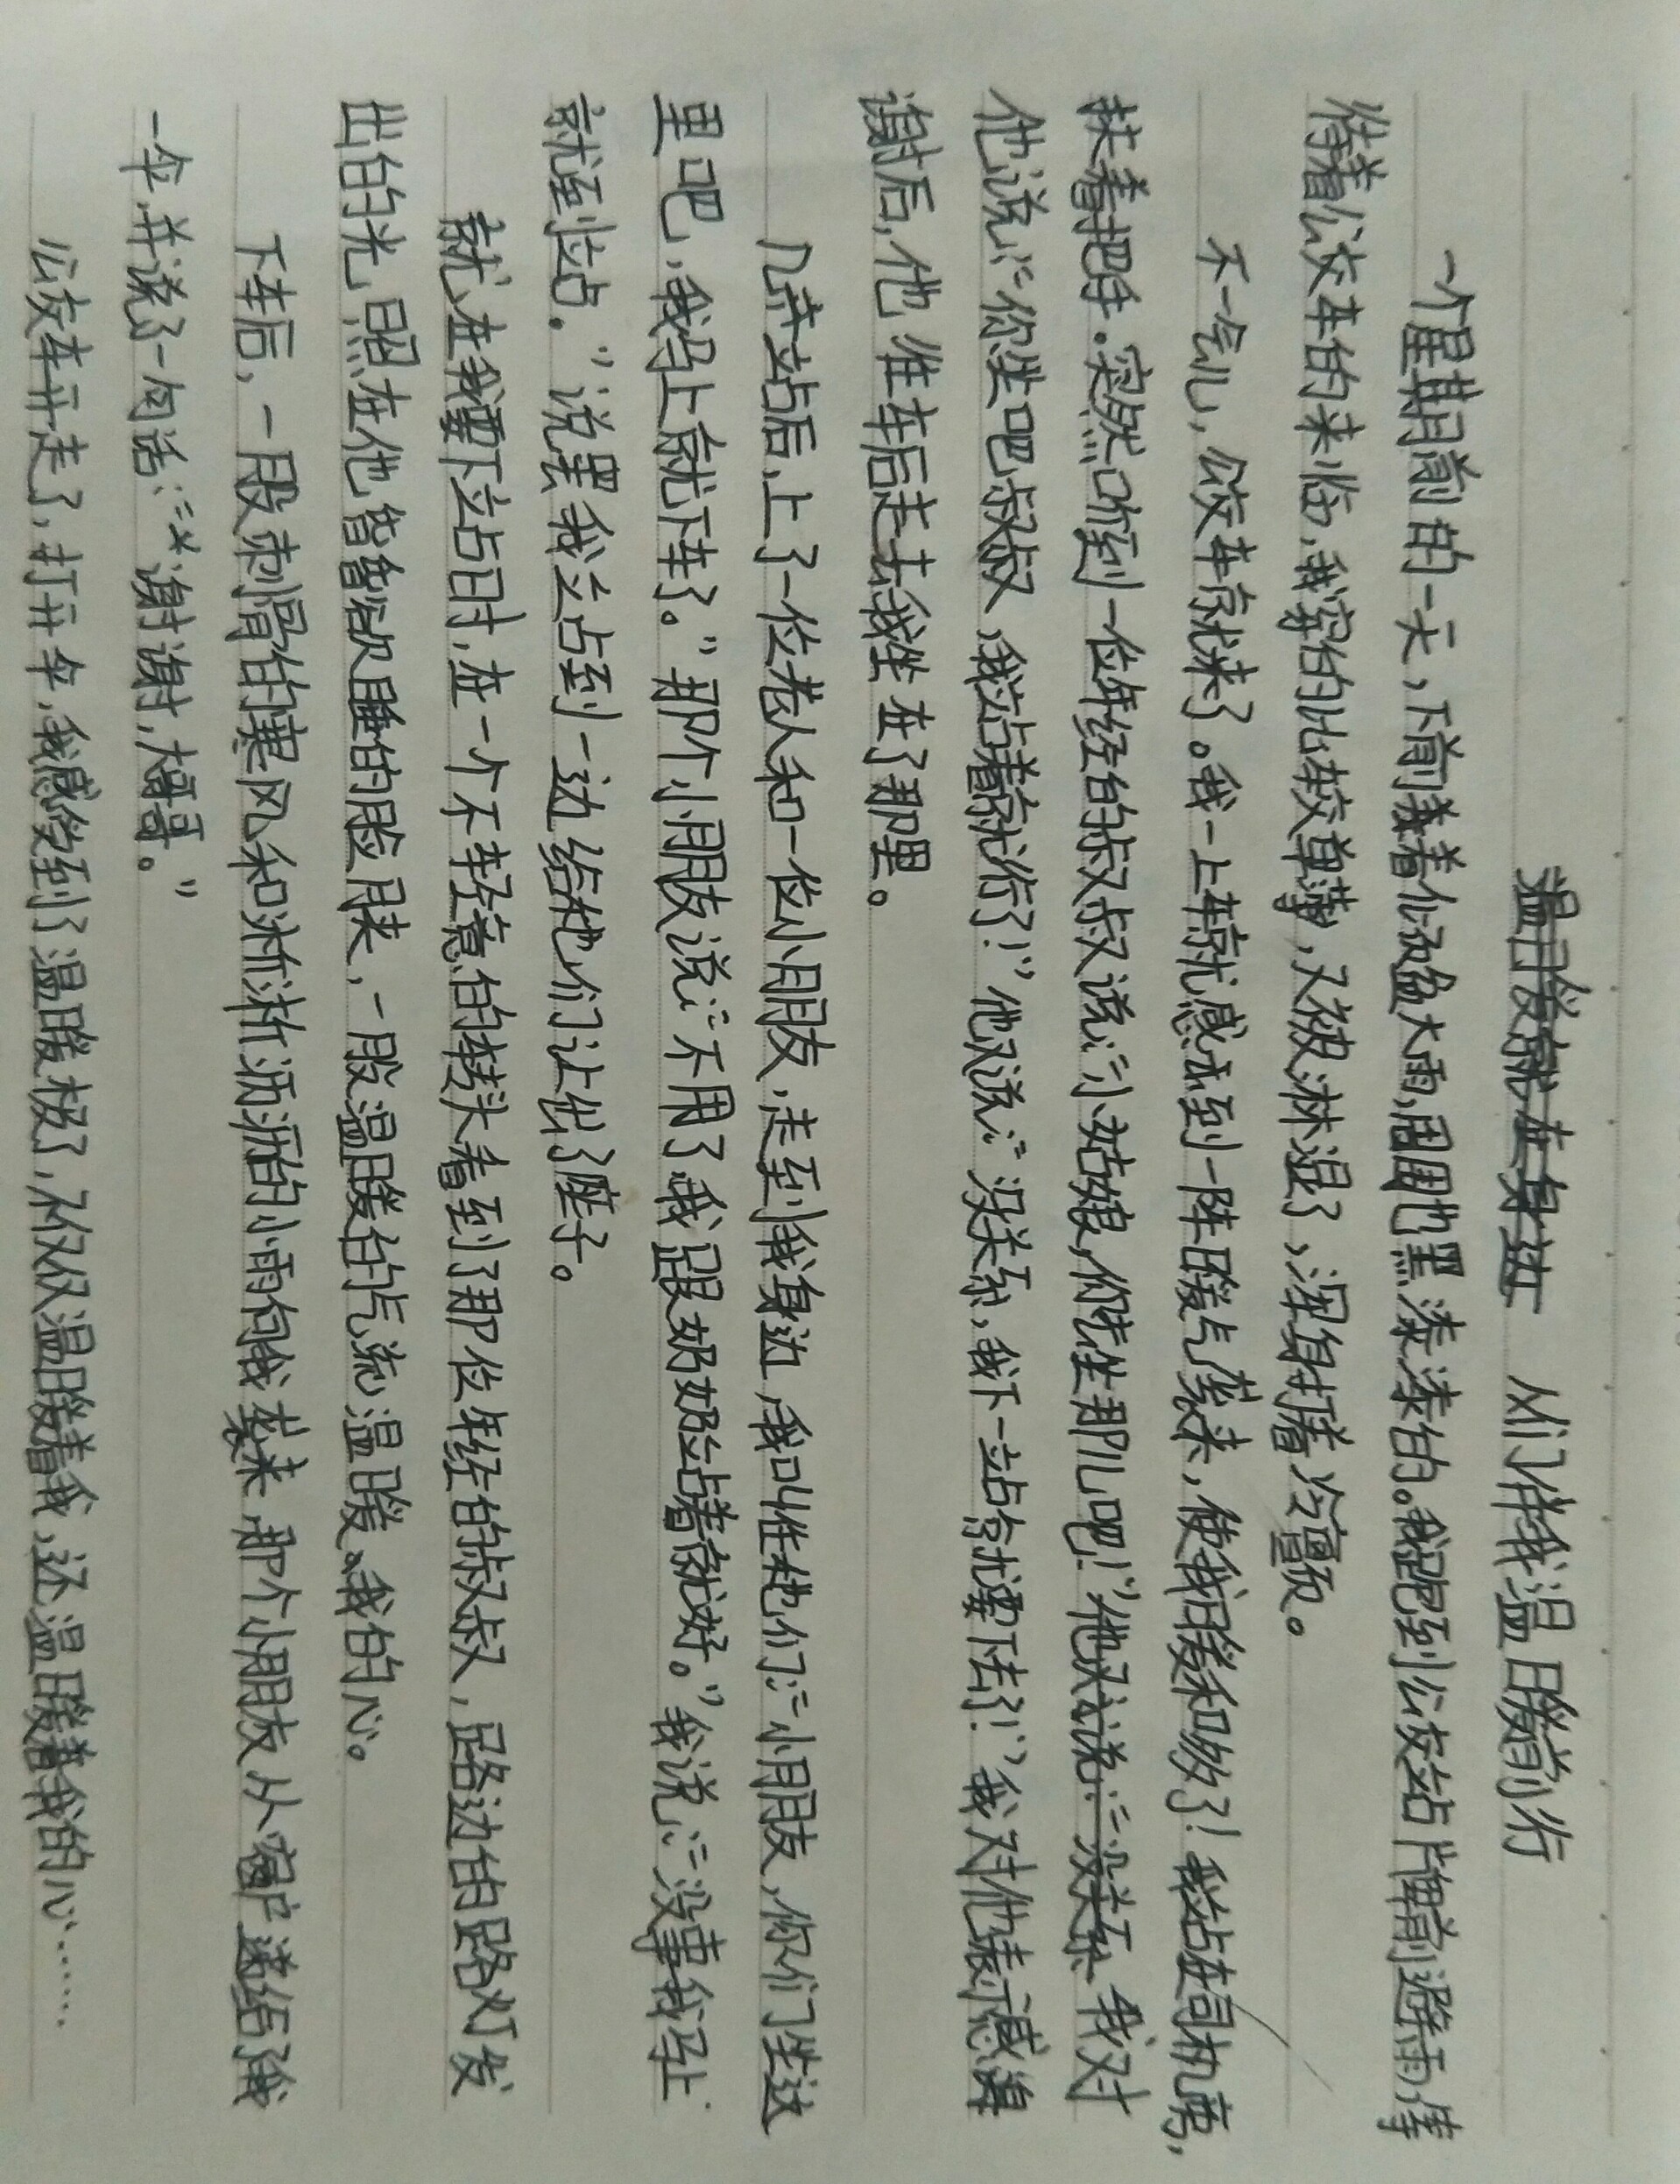 温暖就在身边 从门伴我温暖前行
一个星期前的一天,下前着倾盆大雨,周围也黑漆漆的。我跑到公交站牌前避雨,等
待着公交车的来临,我穿的比较单薄,又被淋湿了,深身打着冷颤。
不一会儿,公交车就来了。我一上车就感到一阵暖气袭来,使我暖和多了!我站在司机旁,
扶着把手。突然听到一位年轻的叔叔说:“小姑娘,你坐那儿吧!”他又说:“没关系 我对
他说:“你坐吧叔叔,我站着就行了!”他又说:“没关系,我下一站就要下去了!”我对他表示感谢
谢后,他往车后走去我坐在了那里。
几站后,上了一位老人和一位小朋友,走到我身边,我叫住他们:“小朋友,你们坐这
里吧,我马上就下车了。”那个小朋友说:“不用了我跟奶奶站着就好。”我说:“没事我马上
就到站。”说罢我站到一边给他们让出了座子。
就在我要下站时,在一个不轻意的转头看到了那位年轻的叔叔,路边的路灯发
出的光,照在他昏昏欲睡的脸夹,一股温暖的气流温暖我的心。
下车后,一股刺骨的寒风和淅淅沥沥的小雨向我袭来,那个小朋友从窗户递给了我
一伞,并说了一句话:“谢谢,大哥哥。”
公交车开走了,打开伞,我感受到了温暖极了,不仅仅温暖着我,还温暖着我的心……